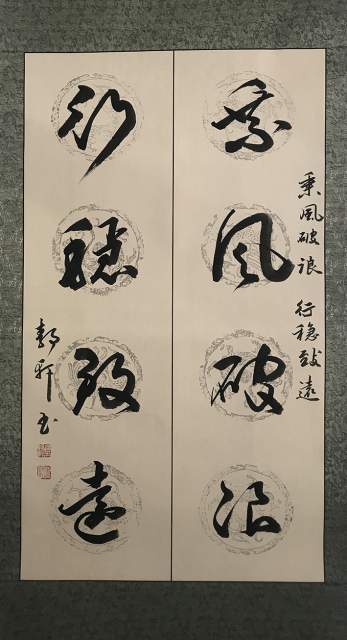 乘风破浪 行稳致远
乘风破浪
行稳致远
軒书